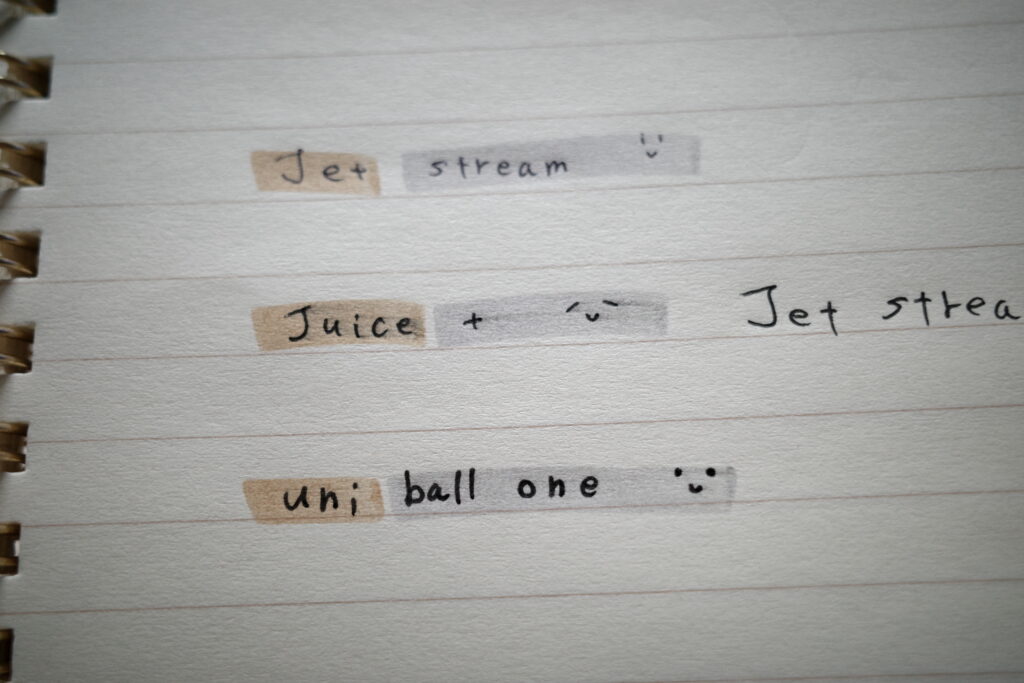 Jet stream
Juice + Jet strea
uni ball one